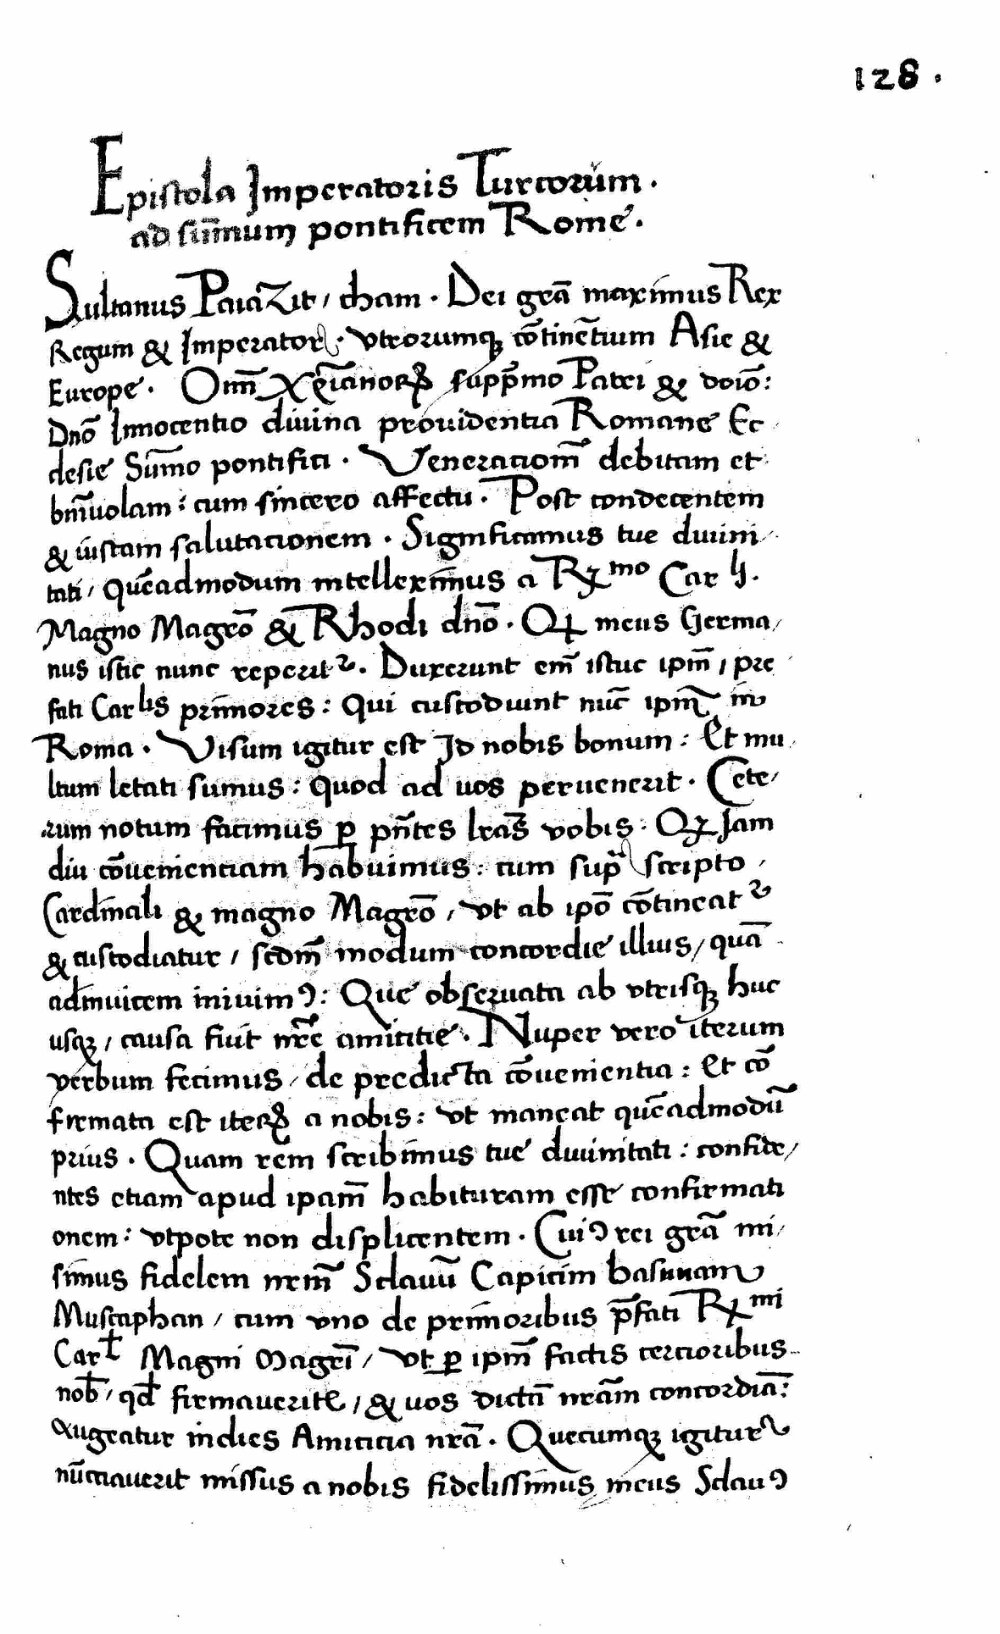 128.
Epistola Imperatoris Turcorum.
ad sum̅mum pontificem Rome.
Sultanus Paiazit / cham. Dei gra̅ maximus Rex
Regum & Imperator. vtrorumqꝫ co̅tine̅tium Asie &
Europe. Om̅i̅ Xp̅ianorꝝ supp̅mo Patri & do̅io:
Dno̅ Innocentio diuina prouidentia Romane Ec
clesie Su̅mo pontifici. Veneraciom̅ debitam et
bniuolam: cum sincero affectu. Post condecentem
& iustam salutacionem. Significamus tue diuini
tati / Que̅admodum intelleximus a R̅mo Carli.
Magno Magr̅o & Rhodi dn̅o. Qꝫ meus Germa/
nus istic nunc reperit². Duxerunt em̅ istuc ipm̅ / pre
fati Carlis primores: Qui custodiunt nu̅c ipm̅ in
Roma. Visum igitur est Id nobis bonum: Et mu
ltum letati sumus: Quod ad vos peruenerit. Cete/
rum notum facimus ꝑ pn̅tes lr̅as vobis: Qꝫ Jam
diu co̅uenienciam habuimus: cum supra scripto /
Cardinali & magno Magr̅o / vt ab ip̅o co̅tineat²
& custodiatur / scdm̅ modum concordie illius / qua̅
adinuicem iniuimꝰ: Que obseruata ab vtrisqꝫ huc
usqꝫ / causa fuit nr̅e amicitie. Nuper vero iterum
verbum fecimus / de predicta co̅uenientia: Et co̅
firmata est iterꝝ a nobis: vt maneat que̅admodu̅
prius. Quam rem scribimus tue diuinitati: confide/
ntes etiam apud ipam̅ habituram esse confirmati
onem: vtpote non displicentem. Cuiꝰ rei gra̅ mi/
simus fidelem nrm̅ Sclauu̅ Capicim basuuam
Muscaphan / cum vno de primoribus p̅fati R̅mi
Carl Magni Magri̅ / vt ꝑ ipm̅ factis cercioribus
nob̅ / qd̅ firmaverit / & vos dicta̅ nra̅m concordia̅:
Augeatur indies Amicicia nra̅. Quecumqꝫ igitur
nu̅ciauerit missus a nobis fidelissimus meus Sclauꝰ